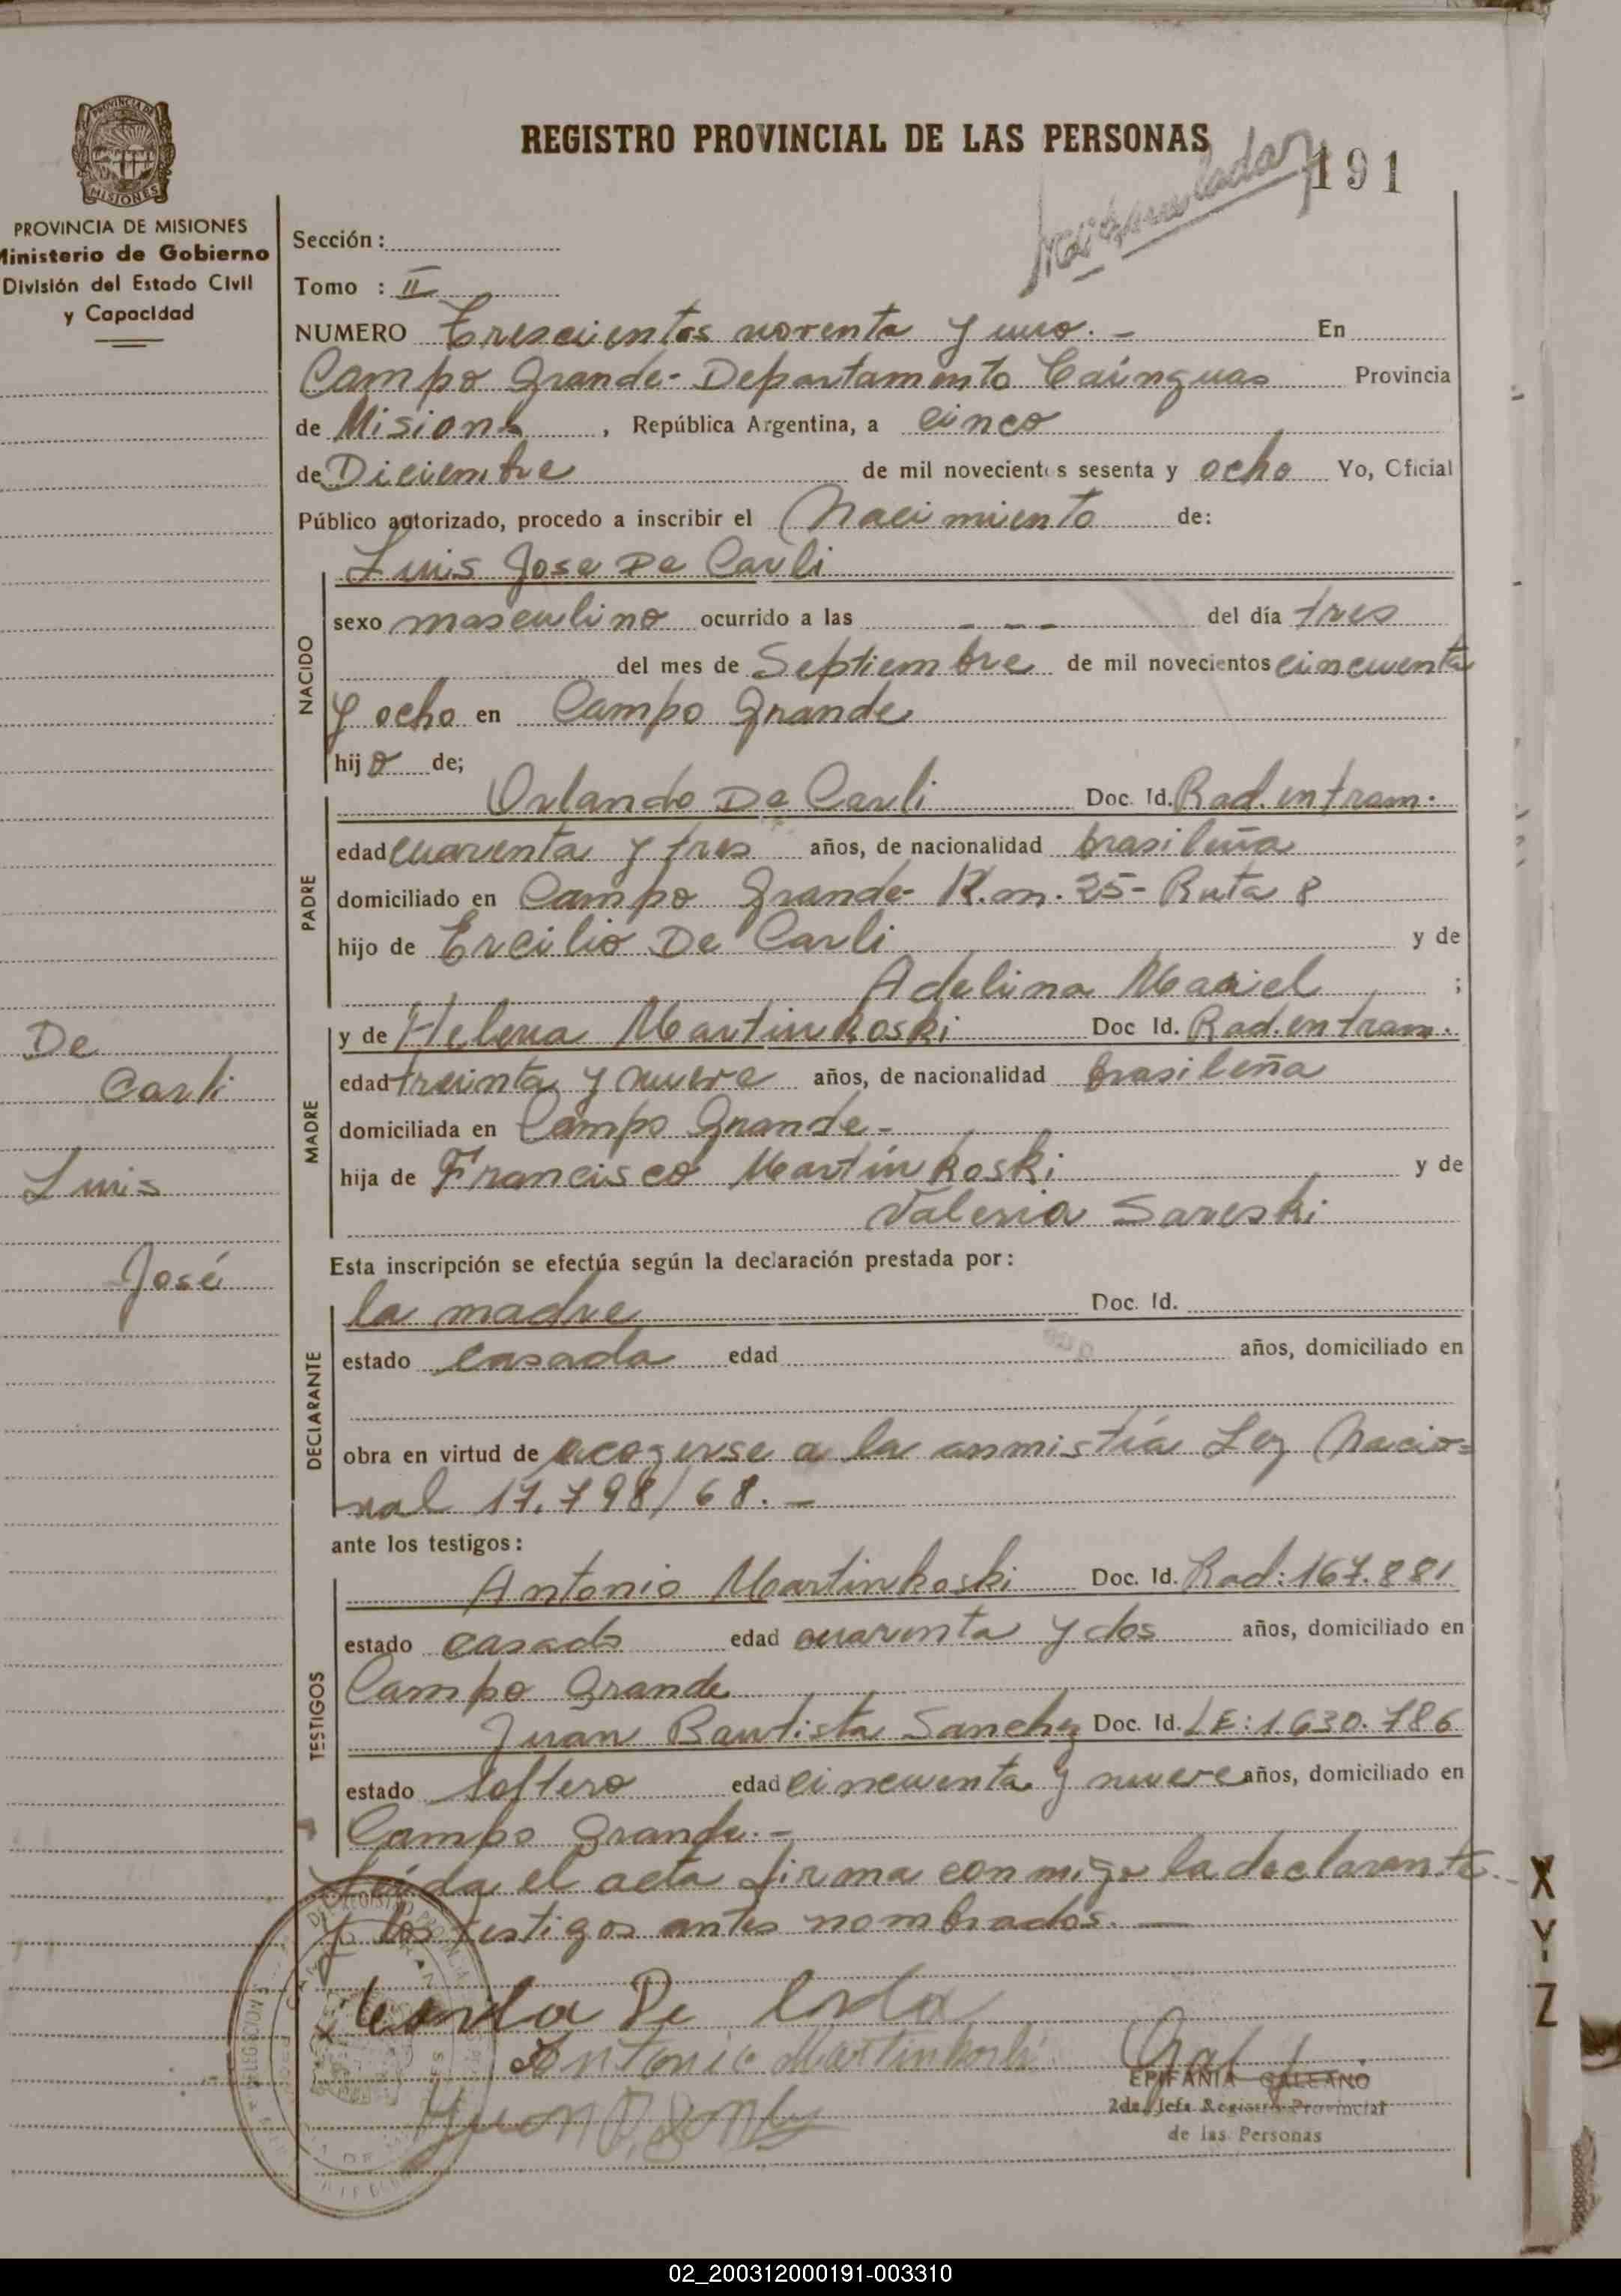 REGISTRO PROVINCIAL DE LAS PERSONAS
191
PROVINCIA DE MISIONES
PROVINCIA DE MISIONES
Ministerio de Gobierno
División del Estado Civil
y Capacidad
Sección :
Tomo : II
NUMERO Trescientos noventa y uno. - En
Campo Grande - Departamento Cainguas Provincia
de Misiones, República Argentina, a cinco
de Diciembre de mil novecientos sesenta y ocho Yo, Oficial
Público autorizado, procedo a inscribir el Nacimiento de:
Luis Jose De Carli
NACIDO
sexo masculino ocurrido a las - - - del día tres
del mes de Septiembre de mil novecientos cincuenta
y ocho en Campo Grande
hijo de;
PADRE
Orlando De Carli Doc. Id. Rad. en tram.
edad cuarenta y tres años, de nacionalidad brasileña
domiciliado en Campo Grande - K.m. 25 - Ruta 8
hijo de Ercilio De Carli y de
Adelina Maciel ;
MADRE
y de Helena Martinkoski Doc Id. Rad. en tram.
edad treinta y nueve años, de nacionalidad brasileña
domiciliada en Campo Grande -
hija de Francisco Martinkoski y de
Valeria Sareski
De
Carli
Luis
José
Esta inscripción se efectúa según la declaración prestada por :
DECLARANTE
la madre Doc. Id.
estado casada edad años, domiciliado en
obra en virtud de acogerse a la anmistía Ley Nacio=
nal 17.798/68. -
ante los testigos :
TESTIGOS
Antonio Martinkoski Doc. Id. Rad: 167.881
estado casado edad cuarenta y dos años, domiciliado en
Campo Grande
Juan Bautista Sanchez Doc. Id. LE: 1.630.786
estado soltero edad cincuenta y nueve años, domiciliado en
Campo Grande. -
Leída el acta firma conmigo la declarante
y los testigos antes nombrados. -
Antonio Martinkoski
EPIFANIA GALEANO
2da. Jefa Registro Provincial
de las Personas
X
Y
Z
02_200312000191-003310